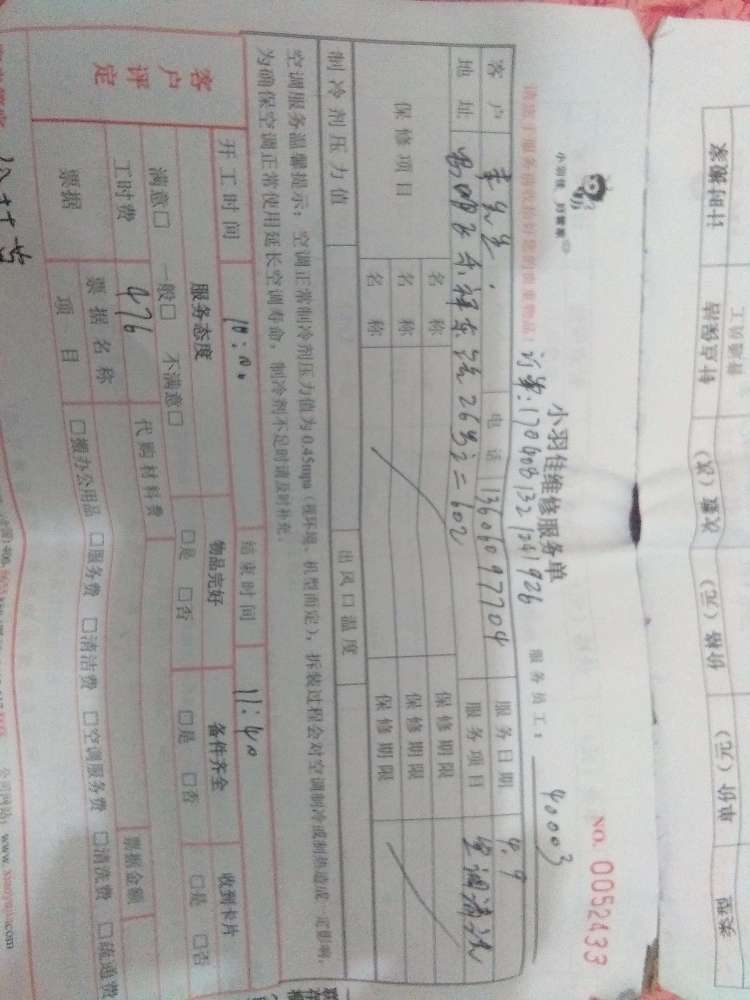 计时搬家 针点保洁 次数（次） 价格（元） 单价（元） 类型
普通员工
小羽佳 好管家
小羽佳维修服务单 NO. 0052433
订单:170908132124192б 服务员工： 40003
请于服务前收拾好您的贵重物品！
客户 李先生 电话 13606097704 服务日期 9.9
地址 服务项目 空调清洗
保修项目 名称 保修期限
名称 保修期限
名称 保修期限
制冷剂压力值 出风口温度
空调服务温馨提示：空调正常制冷剂压力值为0.45mpa（视环境、机型而定），拆装过程会对空调制冷或制热造成一定影响，
为确保空调正常使用延长空调寿命，制冷剂不足时请及时补充。
开工时间 10:00 结束时间 11:40
客户评定 服务态度 物品完好 备件齐全 收到卡片
满意□ 一般□ 不满意□ □是 □否 □是 □否 □是 □否
工时费 476 代购材料费
票据 票据名称 票据金额
项目 □搬办公用品 □服务费 □清洁费 □空调服务费 □清洗费 □疏通费
公司网站：www.